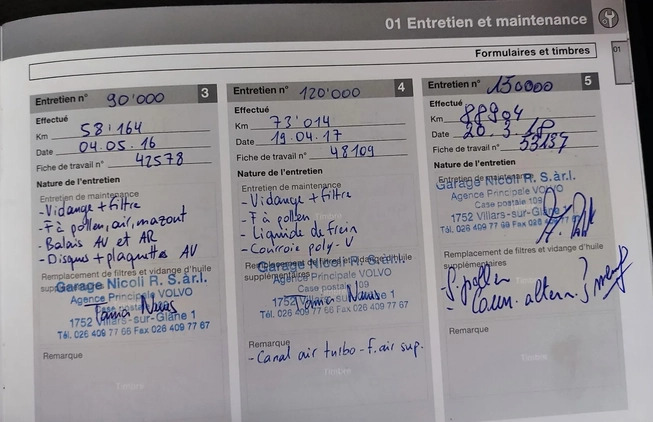 01 Entretien et maintenance
Formulaires et timbres
01
Entretien n° 90'000 3
Effectué
Km 58'164
Date 04.05.16
Fiche de travail n° 42578
Nature de l'entretien
Entretien de maintenance
- Vidange + filtre
- F à pollen, air, mazout
- Balais AV et AR
- Disques + plaquettes AV
Remplacement de filtres et vidange d'huile
supplémentaires
Garage Nicoli R. S.à r.l.
Agence Principale VOLVO
1752 Villars-sur-Glâne 1
Tél. 026 409 77 66 Fax 026 409 77 67
Remarque
Timbre
Entretien n° 120'000 4
Effectué
Km 73'014
Date 19.04.17
Fiche de travail n° 48109
Nature de l'entretien
Entretien de maintenance
- Vidange + filtre
Timbre
- F à pollen
- Liquide de frein
- Courroie poly-V
Remplacement de filtres et vidange d'huile
supplémentaires
Garage Nicoli R. S.à r.l.
Agence Principale VOLVO
Case postale 109
1752 Villars-sur-Glâne 1
Tél. 026 409 77 66 Fax 026 409 77 67
Remarque
- Canal air turbo - F. air sup.
Timbre
Entretien n° 150000 5
Effectué
Km 88904
Date 20.3.18
Fiche de travail n° 53137
Nature de l'entretien
Entretien de maintenance
Garage Nicoli R. S.à r.l.
Agence Principale VOLVO
Case postale 109
1752 Villars-sur-Glâne
Tél. 026 409 77 66 Fax 026 409 77 67
Remplacement de filtres et vidange d'huile
supplémentaires
Timbre
- F. pollen
- Courr. altern.
Remarque
Timbre